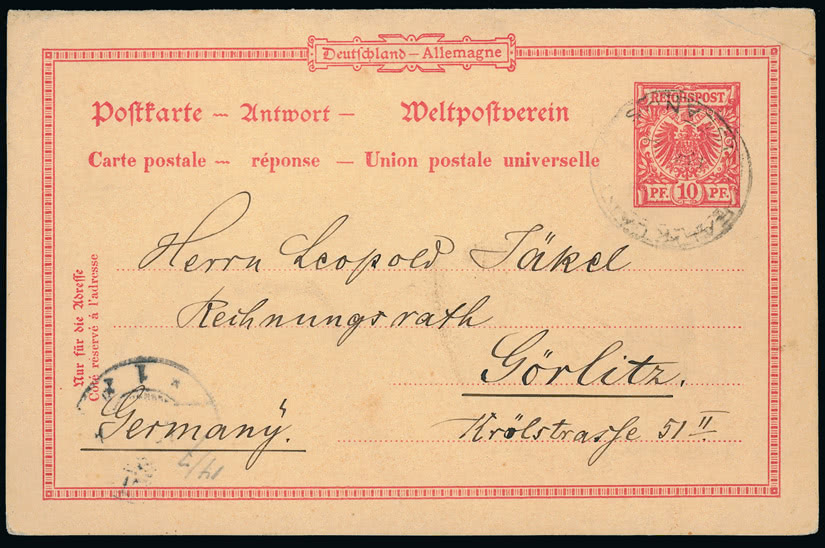 Deutschland – Allemagne
REICHSPOST
PF. 10 PF.
Postkarte — Antwort — Weltpostverein
Carte postale — réponse — Union postale universelle
Herrn Leopold Jäkel
Rechnungsrath
Görlitz.
Krölstrasse 51 II
Germanÿ.
Nur für die Adresse
Côté réservé à l'adresse